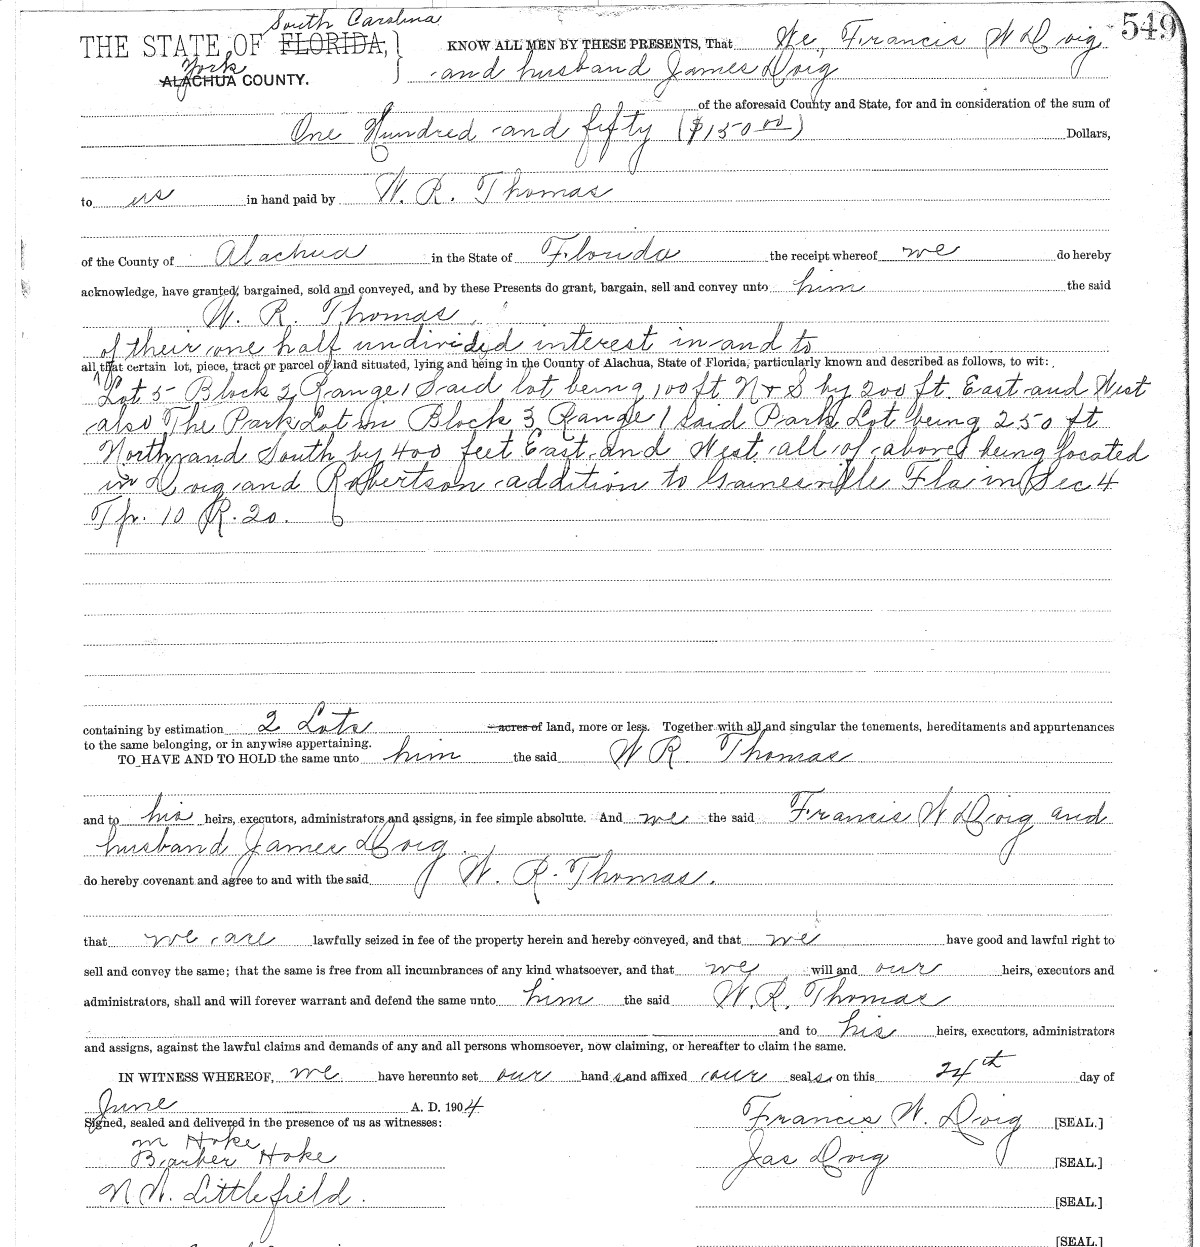 549
South Carolina
THE STATE OF FLORIDA, KNOW ALL MEN BY THESE PRESENTS, That We, Francis W Doig
York
ALACHUA COUNTY. and husband James Doig
of the aforesaid County and State, for and in consideration of the sum of
One Hundred and fifty ($150 00) Dollars,
to us in hand paid by W. R. Thomas
of the County of Alachua in the State of Florida the receipt whereof we do hereby
acknowledge, have granted, bargained, sold and conveyed, and by these Presents do grant, bargain, sell and convey unto him the said
W. R. Thomas
of their one half undivided interest in and to
all that certain lot, piece, tract or parcel of land situated, lying and being in the County of Alachua, State of Florida, particularly known and described as follows, to wit:
Lot 5 Block 2 Range 1 Said lot being 100 ft N & S by 200 ft East and West
also The Park Lot in Block 3 Range 1 said Park Lot being 250 ft
North and South by 400 feet East and West all of above being located
in Doig and Robertson addition to Gainesville Fla in Sec 4
Tp. 10 R. 20.
containing by estimation 2 Lots acres of land, more or less. Together with all and singular the tenements, hereditaments and appurtenances
to the same belonging, or in anywise appertaining.
TO HAVE AND TO HOLD the same unto him the said W R Thomas
and to his heirs, executors, administrators and assigns, in fee simple absolute. And we the said Francis W Doig and
husband James Doig
do hereby covenant and agree to and with the said W. R. Thomas.
that we are lawfully seized in fee of the property herein and hereby conveyed, and that we have good and lawful right to
sell and convey the same; that the same is free from all incumbrances of any kind whatsoever, and that we will and our heirs, executors and
administrators, shall and will forever warrant and defend the same unto him the said W. R. Thomas
and to his heirs, executors, administrators
and assigns, against the lawful claims and demands of any and all persons whomsoever, now claiming, or hereafter to claim the same.
IN WITNESS WHEREOF, we have hereunto set our hands and affixed our seals on this 24th day of
June A. D. 1904
Signed, sealed and delivered in the presence of us as witnesses: Francis W. Doig [SEAL.]
M Hoke
Barker Hoke Jas Doig [SEAL.]
N. W. Littlefield. [SEAL.]
[SEAL.]